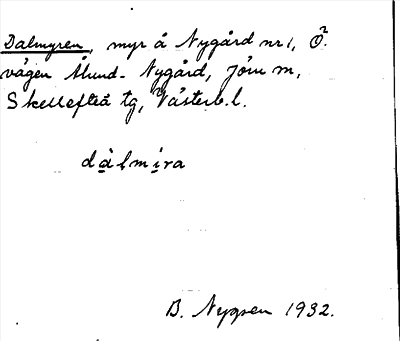 Dalmyren, myr å Nygård nr 1, Ö.
vägen Ålund - Nygård, Jörn m,
Skellefteå tg, Västerb. l.
dàlmịra
B. Nygren 1932.